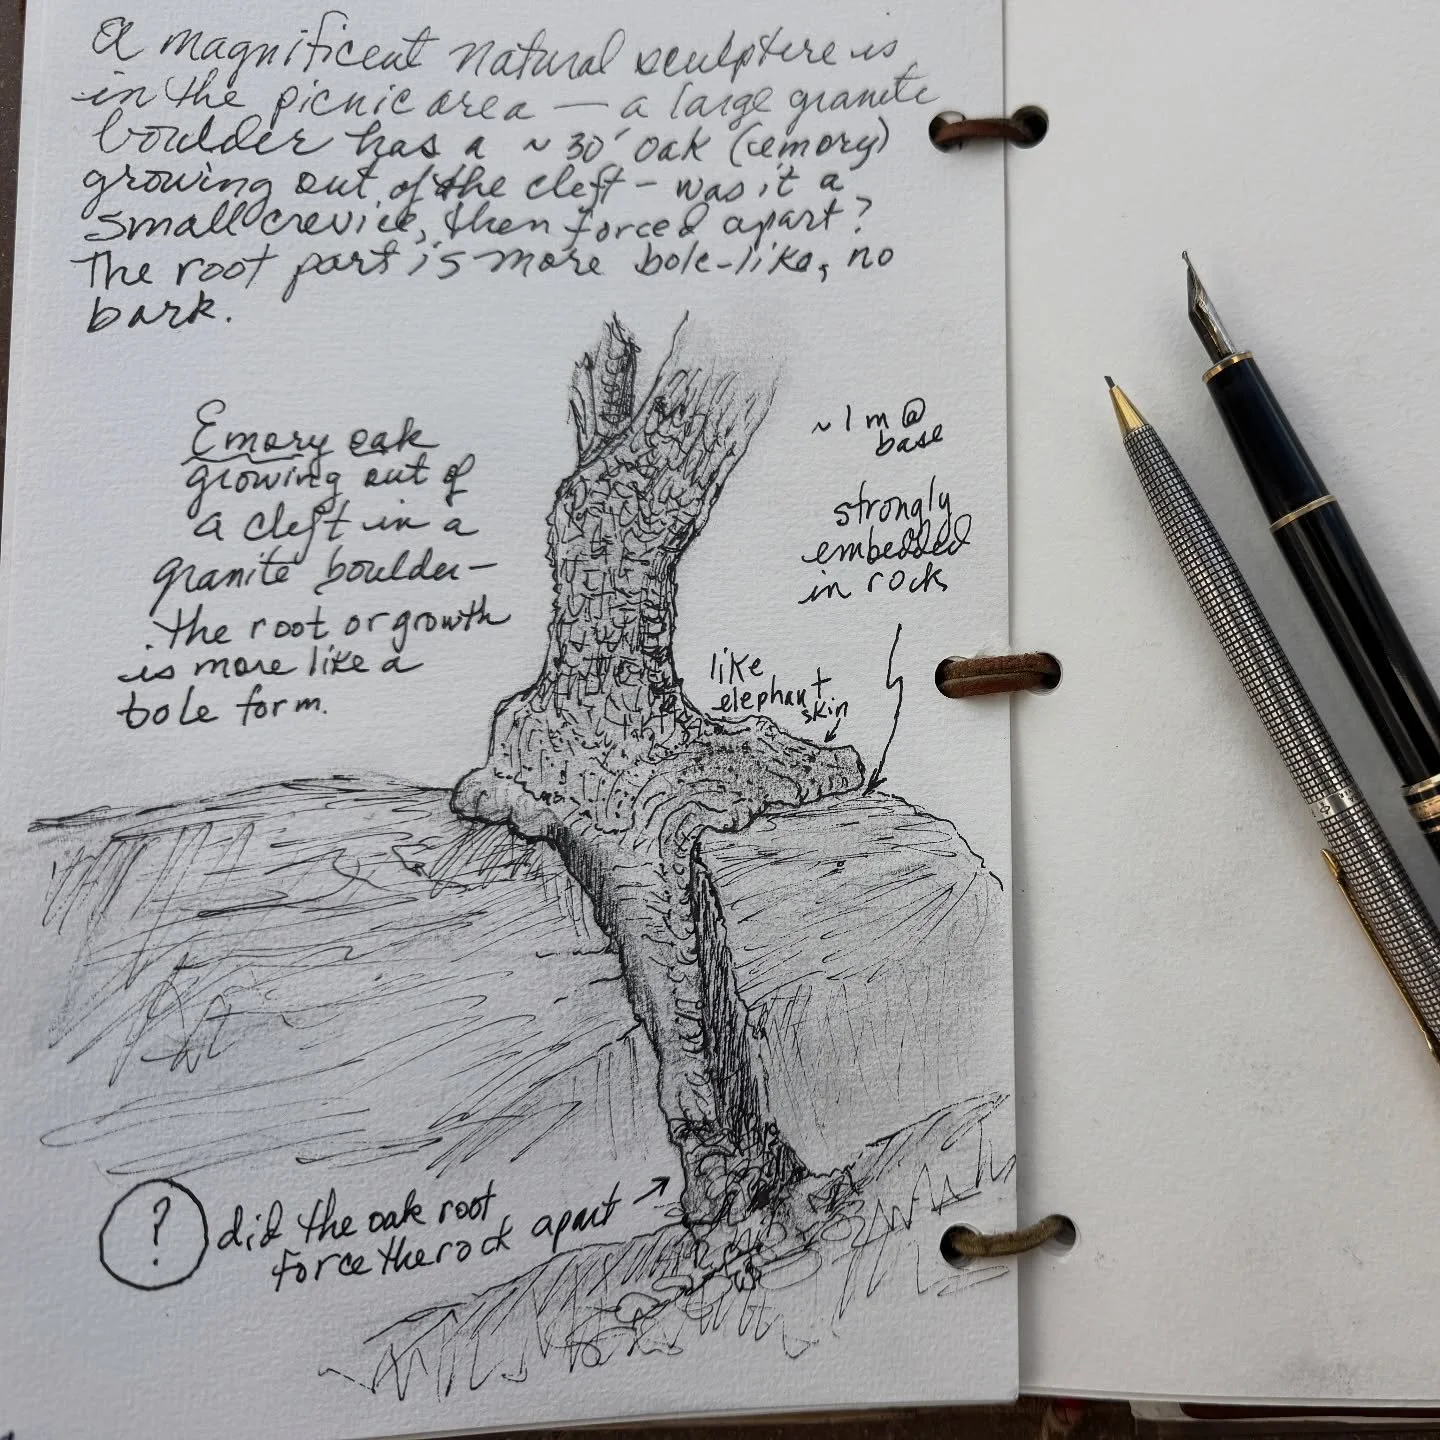 A magnificent natural sculpture is
in the picnic area — a large granite
boulder has a ~30' oak (emory)
growing out of the cleft - was it a
small crevice, then forced apart?
The root part is more bole-like, no
bark.
Emory oak
growing out of
a cleft in a
granite boulder-
the root or growth
is more like a
bole form.
~1 m @
base
strongly
embedded
in rock
like
elephant
skin
? did the oak root
force the rock apart